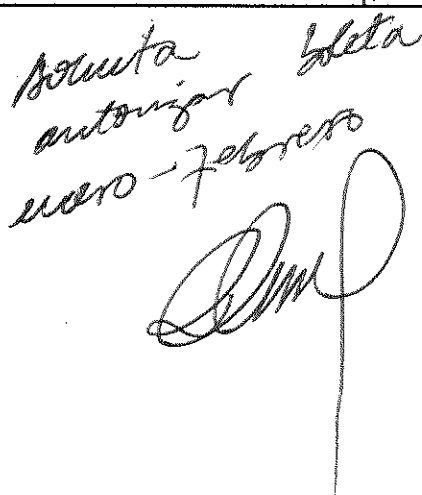 Solicita boleta
autorizar
enero-Febrero